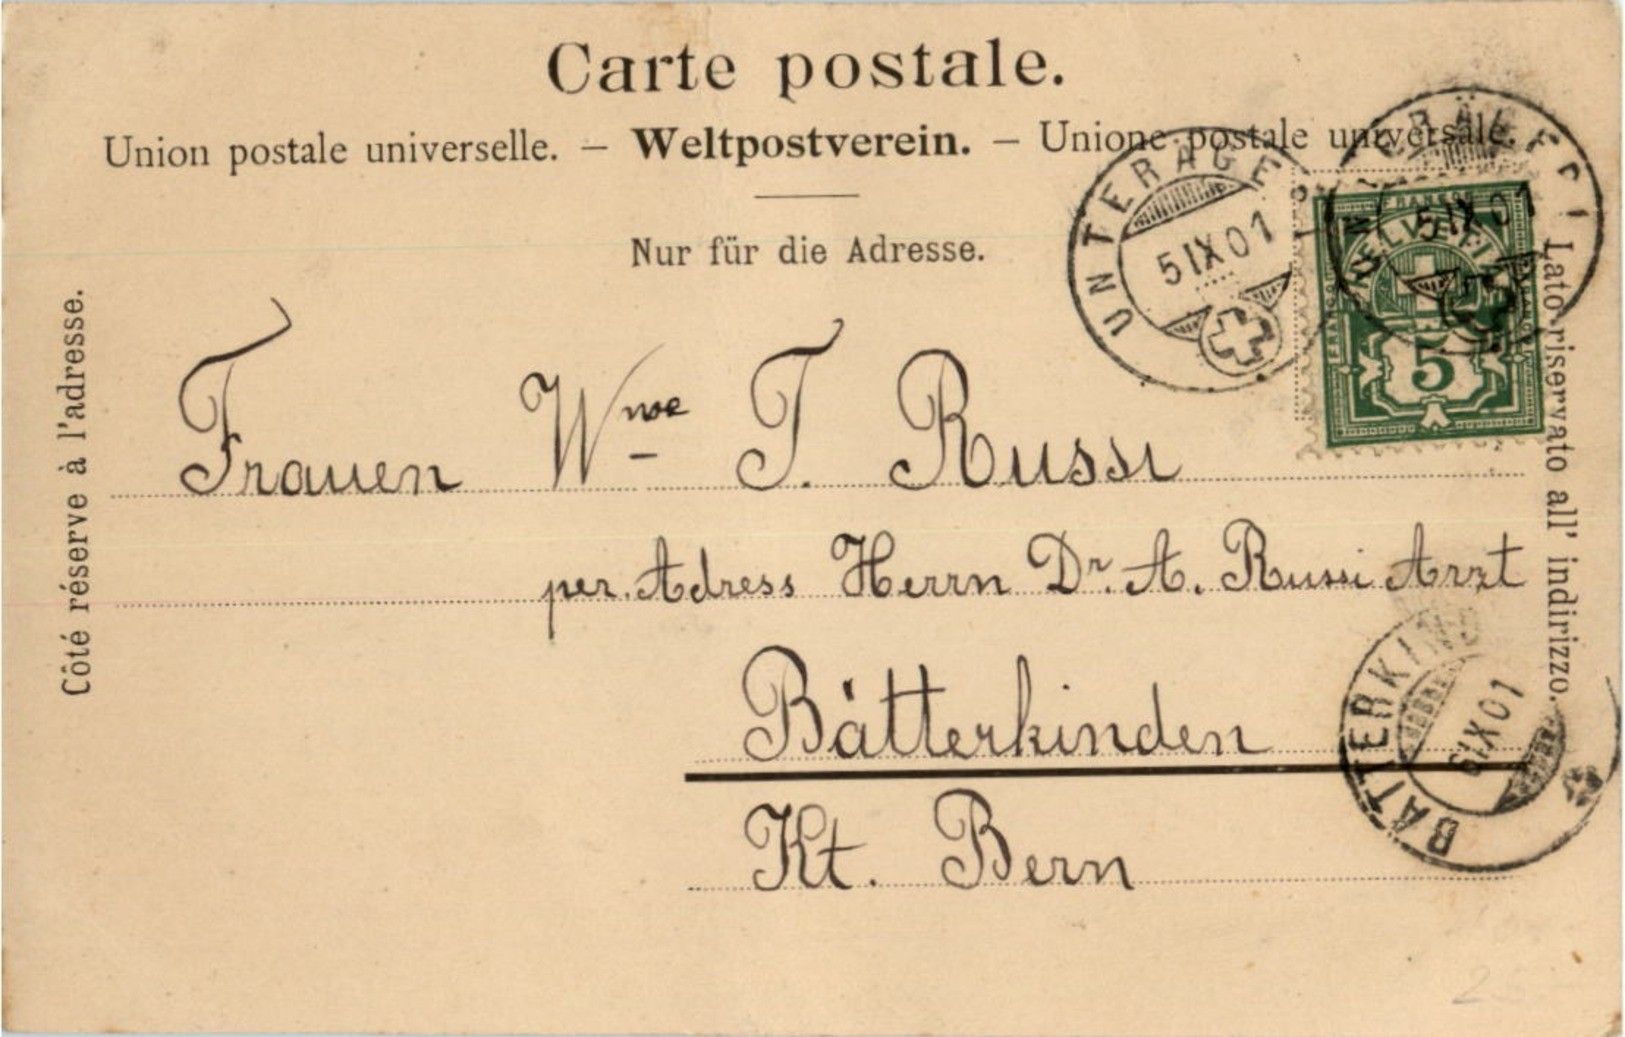 Carte postale.
Union postale universelle. — Weltpostverein. — Unione postale universale.
Nur für die Adresse.
Côté réserve à l'adresse.
Lato riservato all' indirizzo.
UNTERÄGERI
5 IX 01
UNTERÄGERI
5 IX 01
FRANCO
HELVETIA
5
Frauen Wwe J. Russi
per. Adress Herrn Dr. A. Russi Arzt
Bätterkinden
Kt. Bern
BÄTTERKINDEN
6 IX 01
2